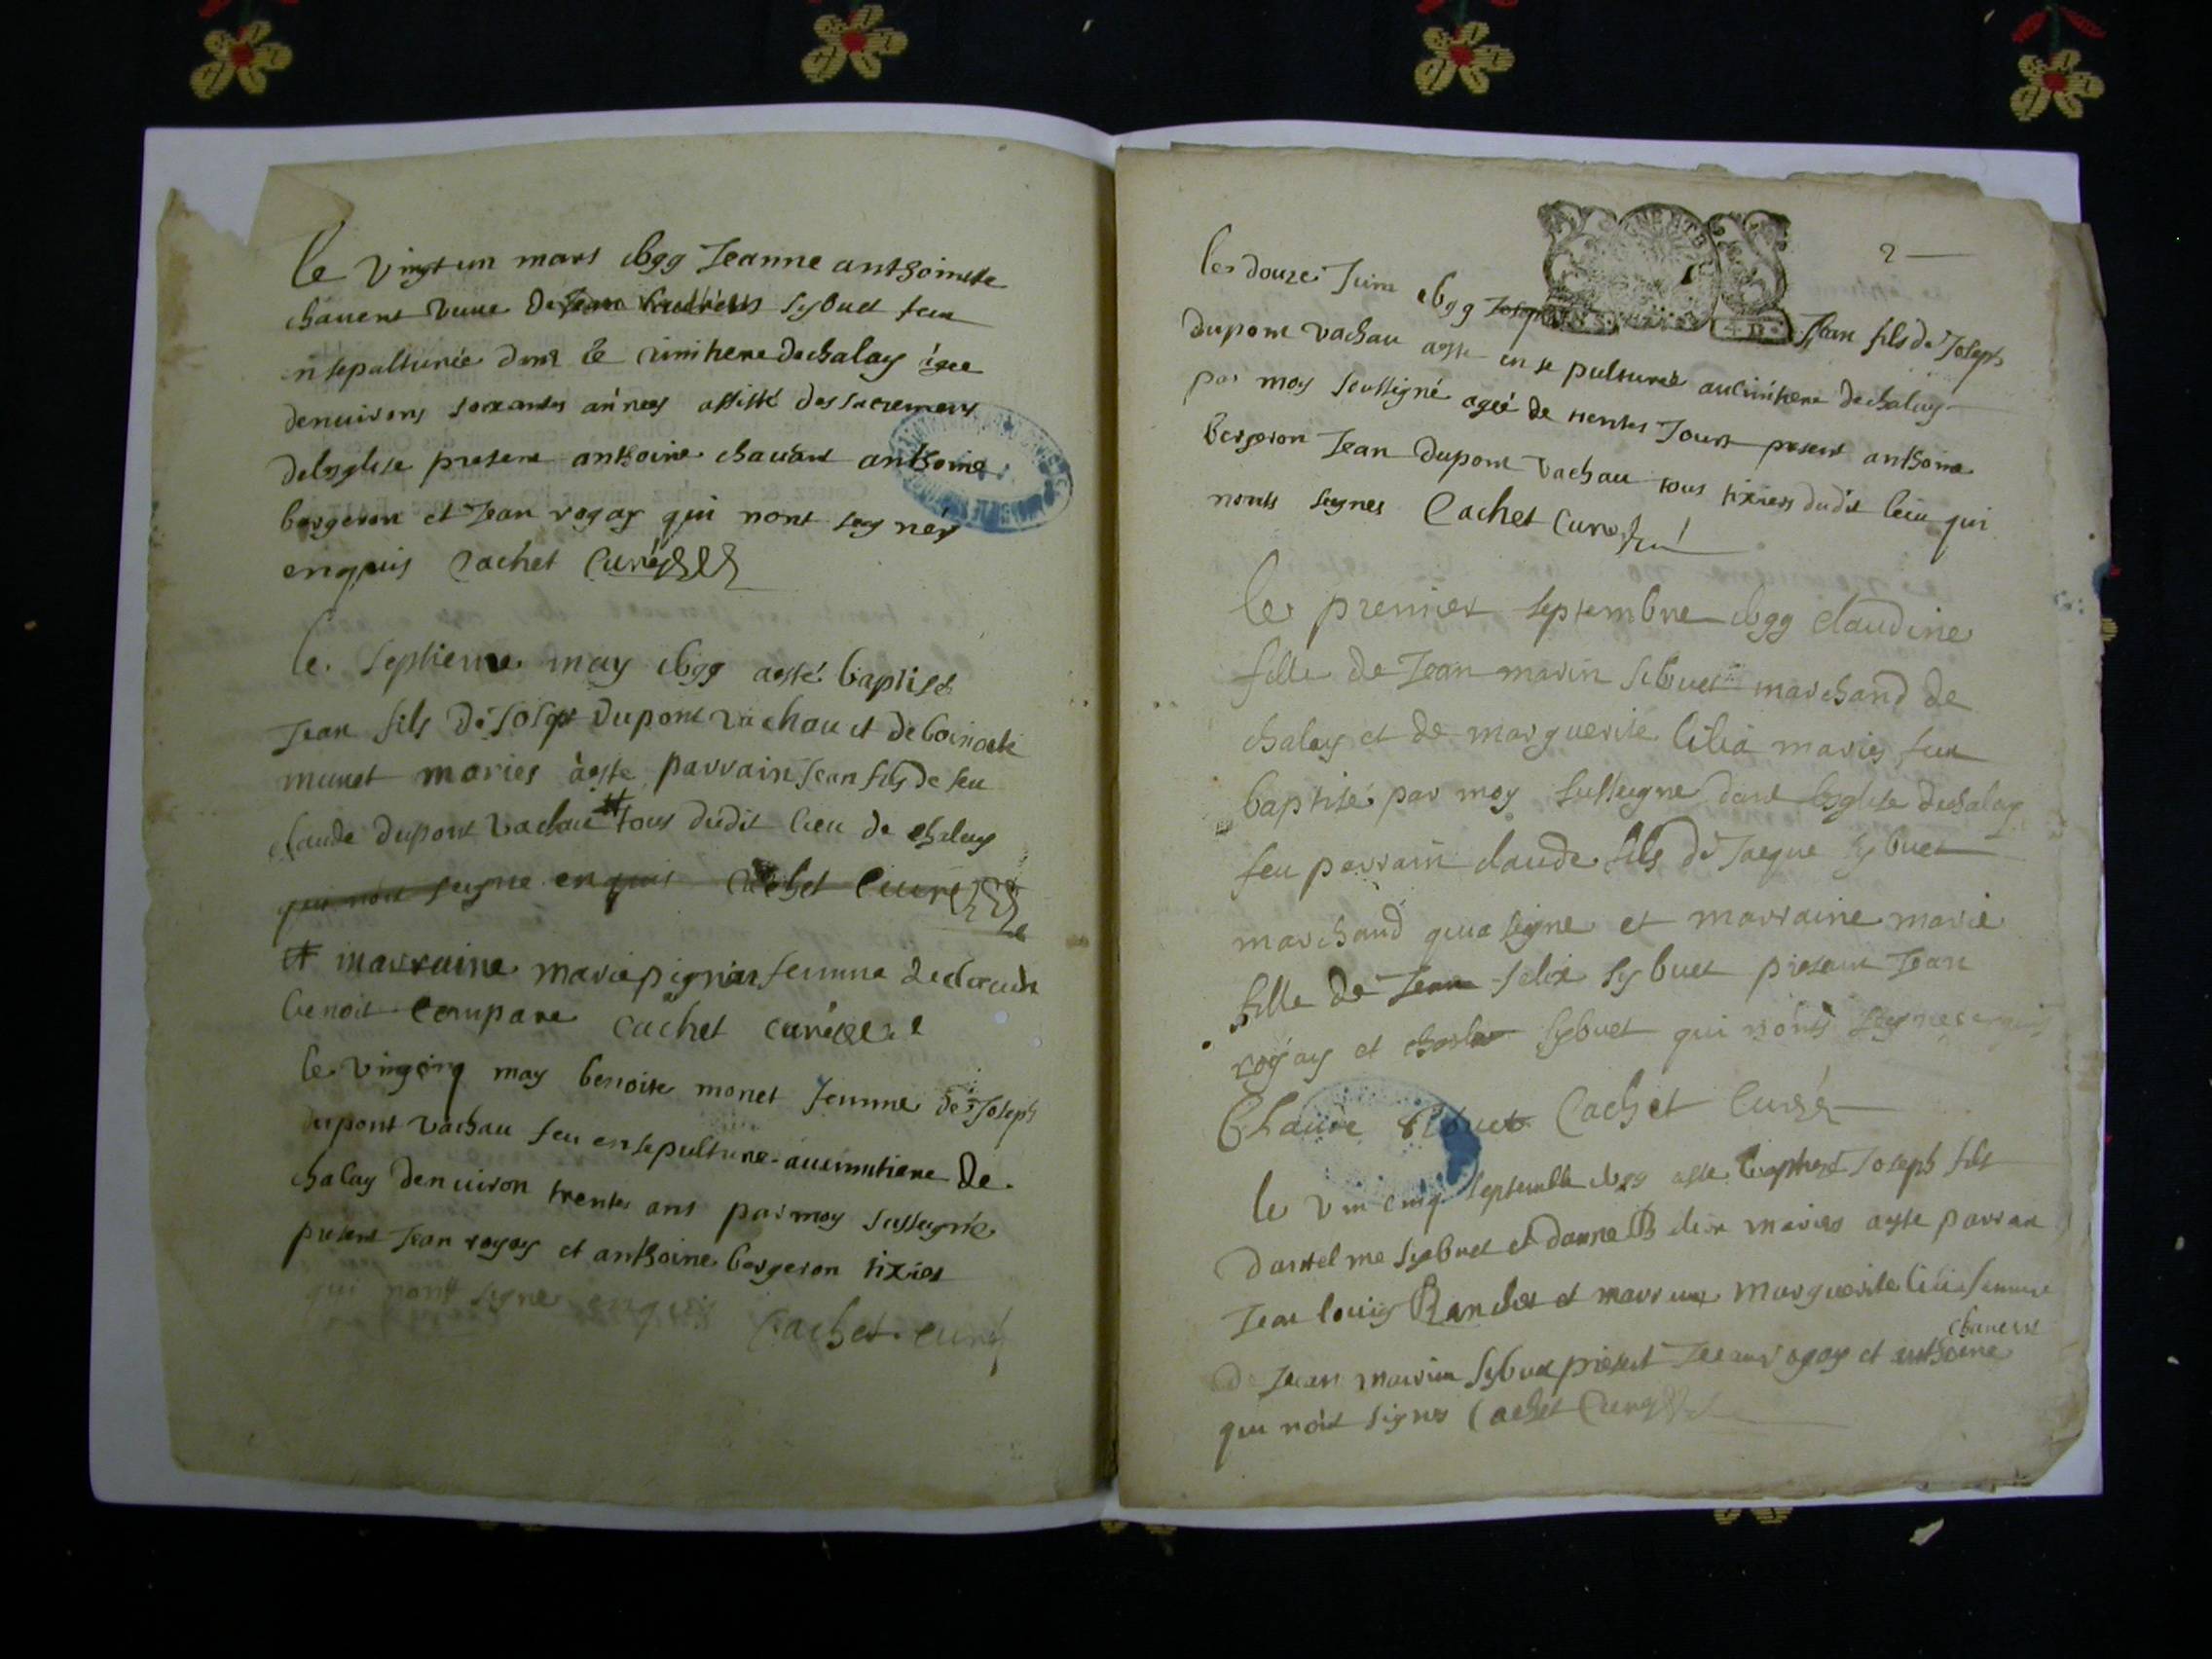 le vingt un mars 1699 Jeanne anthoinette
chavent veuve de Jean sybuet feu
ensepalturée dans le cimitiere de chaley agee
denuirons soixantes années assisté des sacremens
deleglise present anthoine chavant anthoine
bergeron et Jean rogay qui nont seygnés
enquis Cachet Curé
le septieme may 1699 aesté baptisés
Jean fils de Joseph Dupont vachau et de benoite
munet maries aeste parrain Jean fils de feu
claude dupont vachau # tous dudit lieu de chaley
qui nont seygne enquis Cachet Curé
# marraine marie pignier femme de claude
benoit compare cachet curé
le vingcinq may benoite monet femme de Joseph
dupont vachau feu ensepulture au cimitiere de
chalay denuiron trentes ans par moy sussugne
present Jean rogay et anthoine bergeron tixier
qui nont signe enquis
Cachet curé
2
les douze Juin 1699 Joseph Jean fils de Joseph
dupont vachau aeste ensepulturée au cimitiere de chaley
par moy soussigné ageé de trentes Jours present anthoine
bergeron Jean dupont vachau tous tixiers dudit lieu qui
nonts signes Cachet Curé
le premier septembre 1699 claudine
fille de Jean marin sibuet marchand de
chaley et de marguerite lilia maries feu
baptisé par moy sussigne dans leglise de chaley
feu parrain claude fils de Jaque sybuet
marchand qui a signe et marraine marie
fille de Jean felix sybuet present Jean
rogay et sybuet qui nonts seygnes enquis
Claude sibuet Cachet Curé
le vin cinq septembre 1699 aste baptisé Joseph fils
dantelme sybuet et danne maries aeste parrain
Jean louis et marraine marguerite lilia femme
chavent
de Jean marin sybuet present Jean rogay et anthoine
qui nont signes Cachet Curé